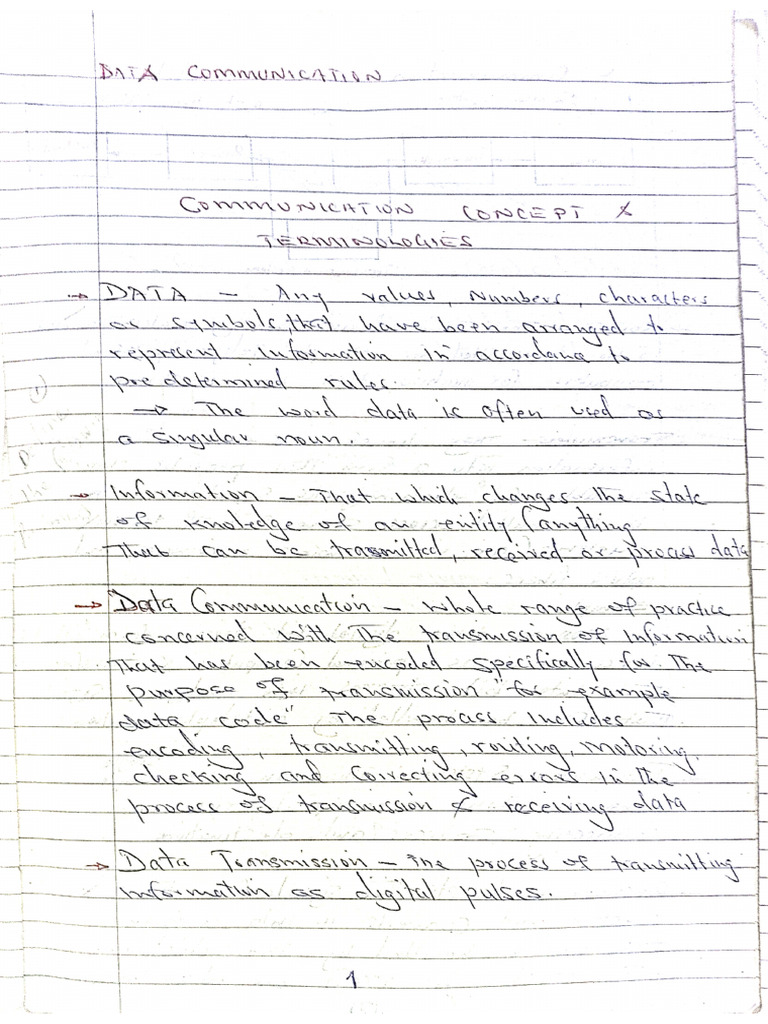 DATA COMMUNICATION
COMMUNICATION CONCEPT &
TERMINOLOGIES
→ DATA - Any values, Numbers, characters
or symbols, that have been arranged to
represent information in accordance to
predetermined rules.
→ The word data is often used as
a singular noun.
→ Information - That which changes the state
of knoledge of an entity (anything
that can be transmitted, received or process data
→ Data Communication - Whole range of practice
concerned with the transmission of information
that has been encoded specifically for the
purpose of transmission "for example
data code" The process includes
encoding, transmitting, routing, motoring,
checking and correcting errors in the
process of transmission & receiving data
→ Data Transmission - The process of transmitting
information as digital pulses.
1